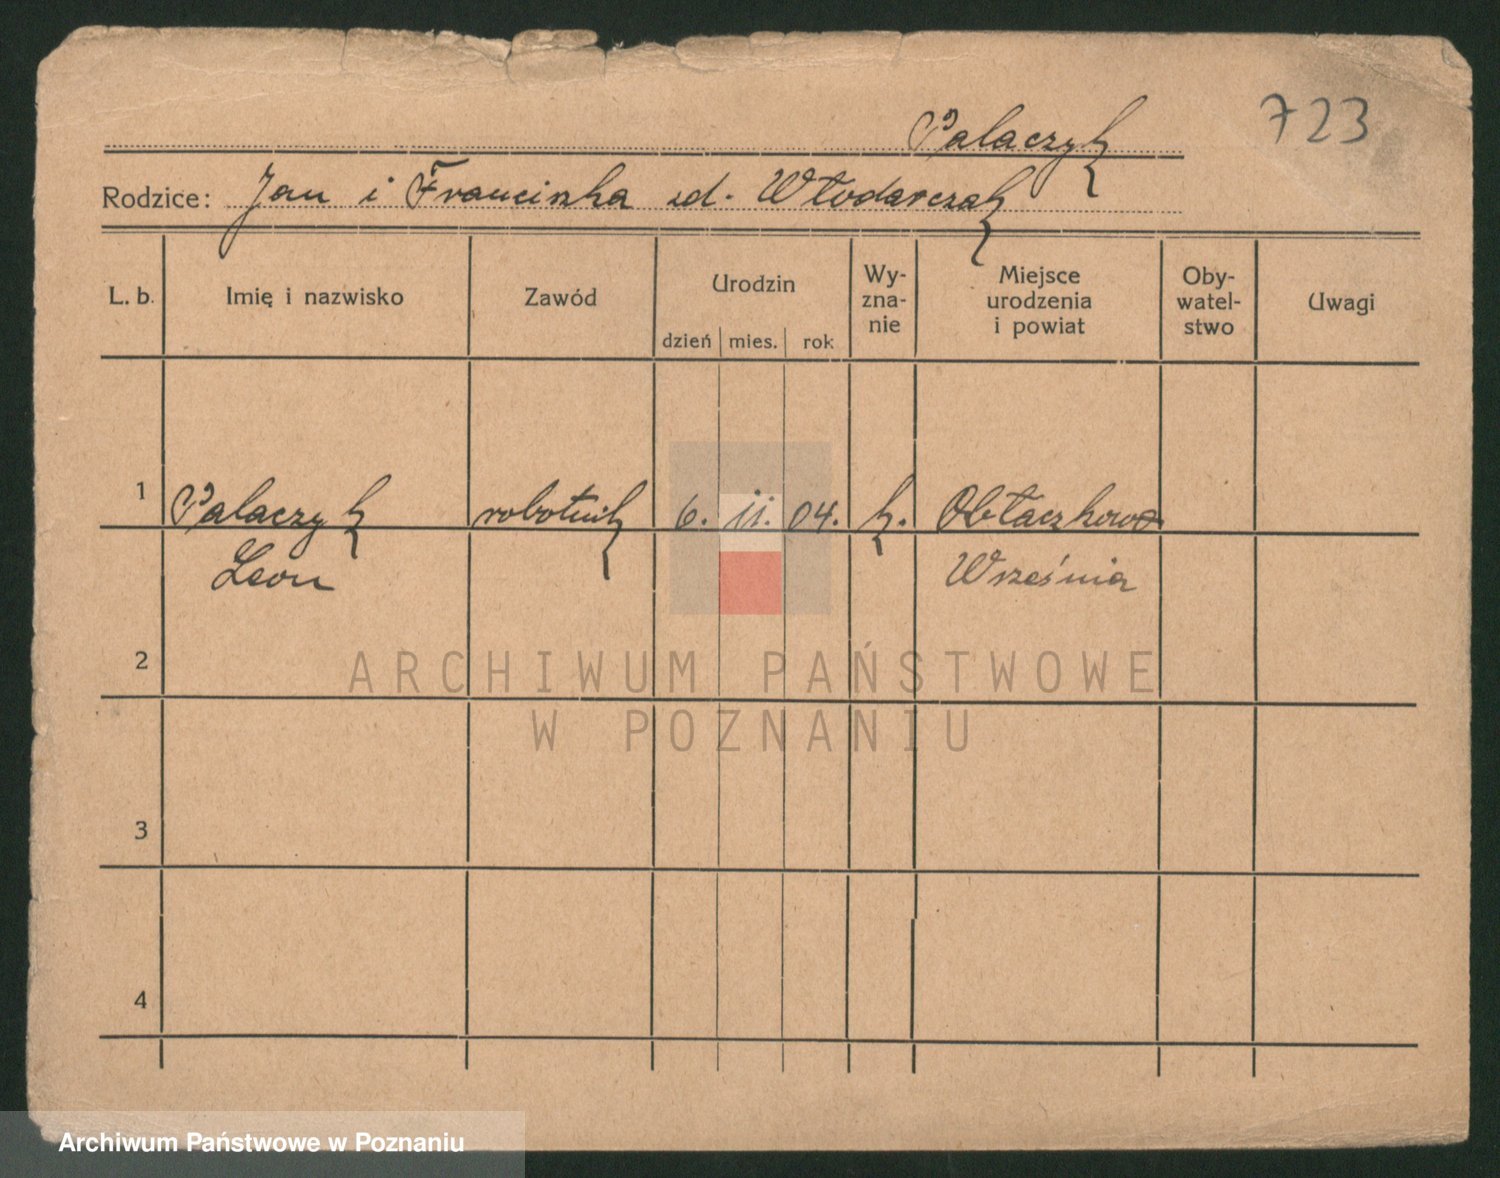 Palaczyk 723
Rodzice: Jan i Franciszka zd. Włodarczak
L. b. Imię i nazwisko Zawód Urodzin Wy-zna-nie Miejsce urodzenia i powiat Oby-watel-stwo Uwagi
dzień mies. rok
1 Palaczyk robotnik 6. ii. 04. k. Obłaczkowo
Leon Września
2
ARCHIWUM PAŃSTWOWE
W POZNANIU
3
4
Archiwum Państwowe w Poznaniu